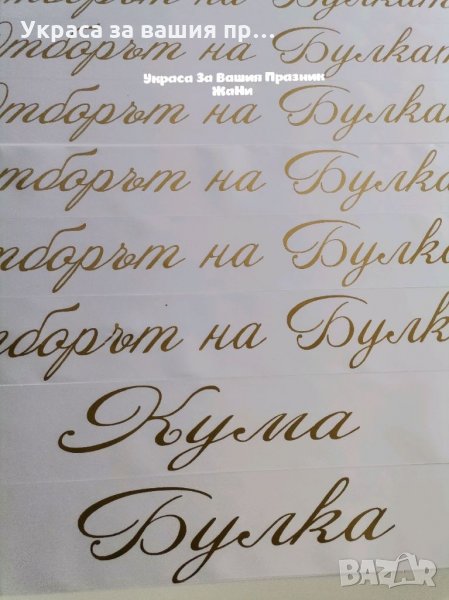 Отборът на Булкат
Украса за вашия пр...
Отборът на Булкат
Украса За Вашия Празник
ЖаНи
Отборът на Булкат
тборът на Булка
тборът на Булка
тборът на Булк
Кума
Булка
BAZAR